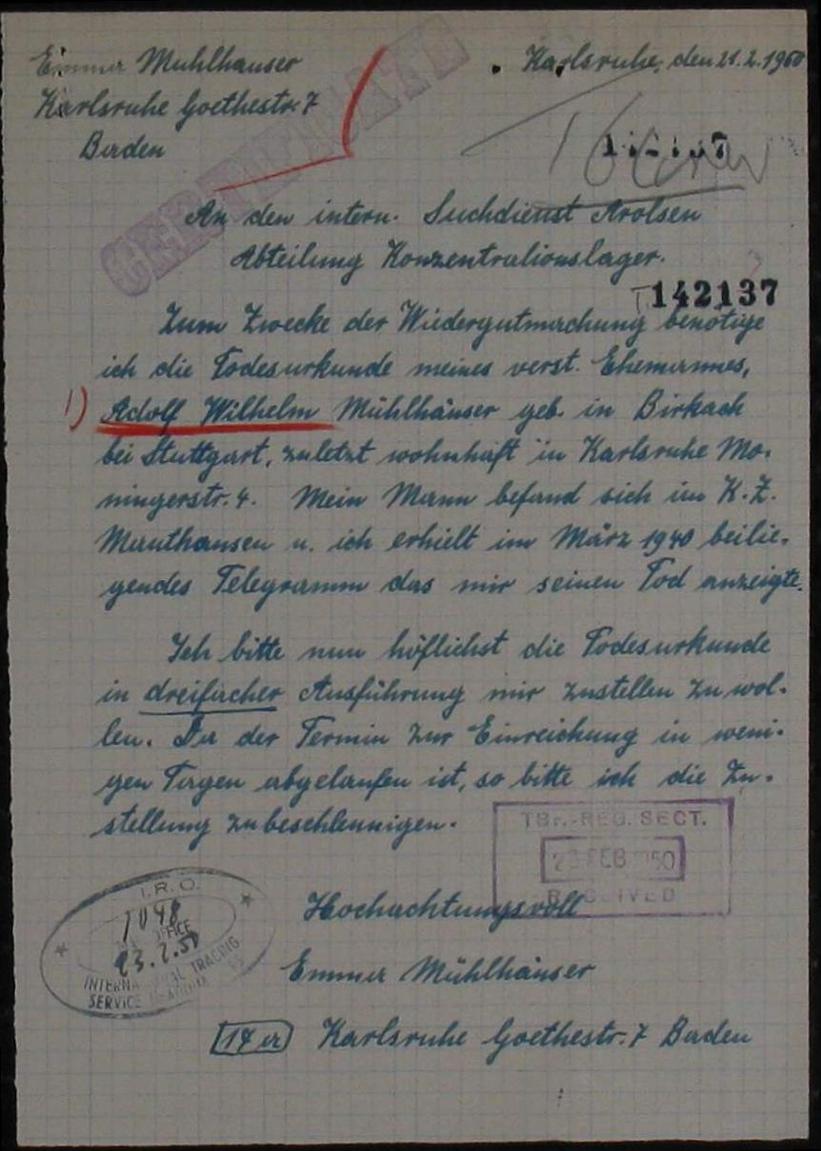 Emma Mühlhäuser
Karlsruhe Goethestr. 7
Baden
Karlsruhe, den 21.2.1950
CERTIFICATE
An den intern. Suchdienst Arolsen
Abteilung Konzentrationslager.
142137
Zum Zwecke der Wiedergutmachung benötige
ich die Todesurkunde meines verst. Ehemannes,
1) Adolf Wilhelm Mühlhäuser geb. in Birkach
bei Stuttgart, zuletzt wohnhaft in Karlsruhe Mo-
ningerstr. 4. Mein Mann befand sich im K.Z.
Mauthausen u. ich erhielt im März 1940 beilie-
gendes Telegramm das mir seinen Tod anzeigte.
Ich bitte nun höflichst die Todesurkunde
in dreifacher Ausführung mir zustellen zu wol-
len. Da der Termin zur Einreichung in weni-
gen Tagen abgelaufen ist, so bitte ich die Zu-
stellung zu beschleunigen.
TBr.-REG. SECT.
23 FEB 1950
RECEIVED
I.R.O.
1048
OFFICE
23.2.50
INTERNATIONAL TRACING
SERVICE
Hochachtungsvoll
Emma Mühlhäuser
14a Karlsruhe Goethestr. 7 Baden